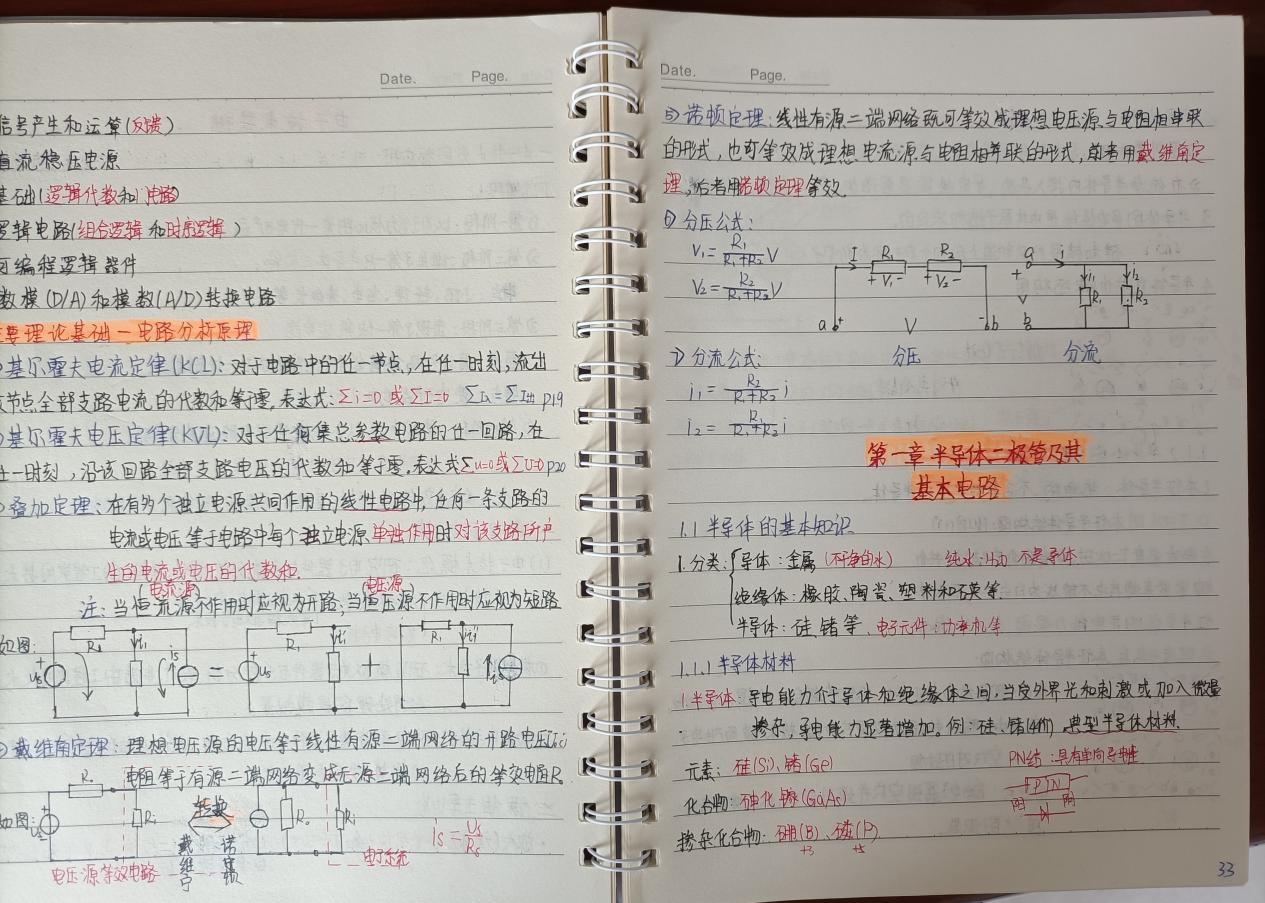 Date. Page.
信号产生和运算(反馈)
直流稳压电源
基础(逻辑代数和门电路)
逻辑电路(组合逻辑和时序逻辑)
可编程逻辑器件
数模(D/A)和模数(A/D)转换电路
主要理论基础—电路分析原理
基尔霍夫电流定律(KCL):对于电路中的任一节点,在任一时刻,流出
节点全部支路电流的代数和等于零,表达式:Σi=0 或 ΣI=0 ΣI入=ΣI出 P19
基尔霍夫电压定律(KVL):对于任何集总参数电路的任一回路,在
任一时刻,沿该回路全部支路电压的代数和等于零,表达式Σu=0或ΣU=0 P20
叠加定理:在有多个独立电源共同作用的线性电路中,任何一条支路的
电流或电压等于电路中每个独立电源单独作用时对该支路所产
生的电流或电压的代数和.
(电流源) (电压源)
注:当恒流源不作用时应视为开路,当恒压源不作用时应视为短路
如图:
R₁ i₁ is us = R₁ i₁' us + R₁ i₁'' is
戴维宁定理:理想电压源的电压等于线性有源二端网络的开路电压
电阻等于有源二端网络变成无源二端网络后的等效电阻R.
如图:
Us Rₛ Rₗ 转换 Rₒ Rₗ
戴维宁 诺顿
is=Us/Rₛ
电压源等效电路
Date. Page.
5)诺顿定理:线性有源二端网络既可等效成理想电压源与电阻相串联
的形式,也可等效成理想电流源与电阻相并联的形式,前者用戴维宁定
理,后者用诺顿定理等效.
6)分压公式:
V₁=R₁/(R₁+R₂)V
V₂=R₂/(R₁+R₂)V
I R₁ R₂ + V₁ - + V₂ - a + V - b
a i + V - b i₁ R₁ i₂ R₂
分压 分流
7)分流公式:
i₁=R₂/(R₁+R₂)i
i₂=R₁/(R₁+R₂)i
第一章 半导体二极管及其
基本电路
1.1 半导体的基本知识
1.分类: 导体:金属(不净的水) 纯水:H₂O 不是导体
绝缘体:橡胶、陶瓷、塑料和石英等
半导体:硅、锗等、电子元件:功率机等
1.1.1 半导体材料
1.半导体:导电能力介于导体和绝缘体之间,当受外界光和刺激或加入微量
掺杂,导电能力显著增加.例:硅、锗(4价),典型半导体材料.
元素:硅(Si)、锗(Ge) PN结:具有单向导电性
化合物:砷化镓(GaAs) P N
掺杂化合物:硼(B)、磷(P)
+3 +5
33